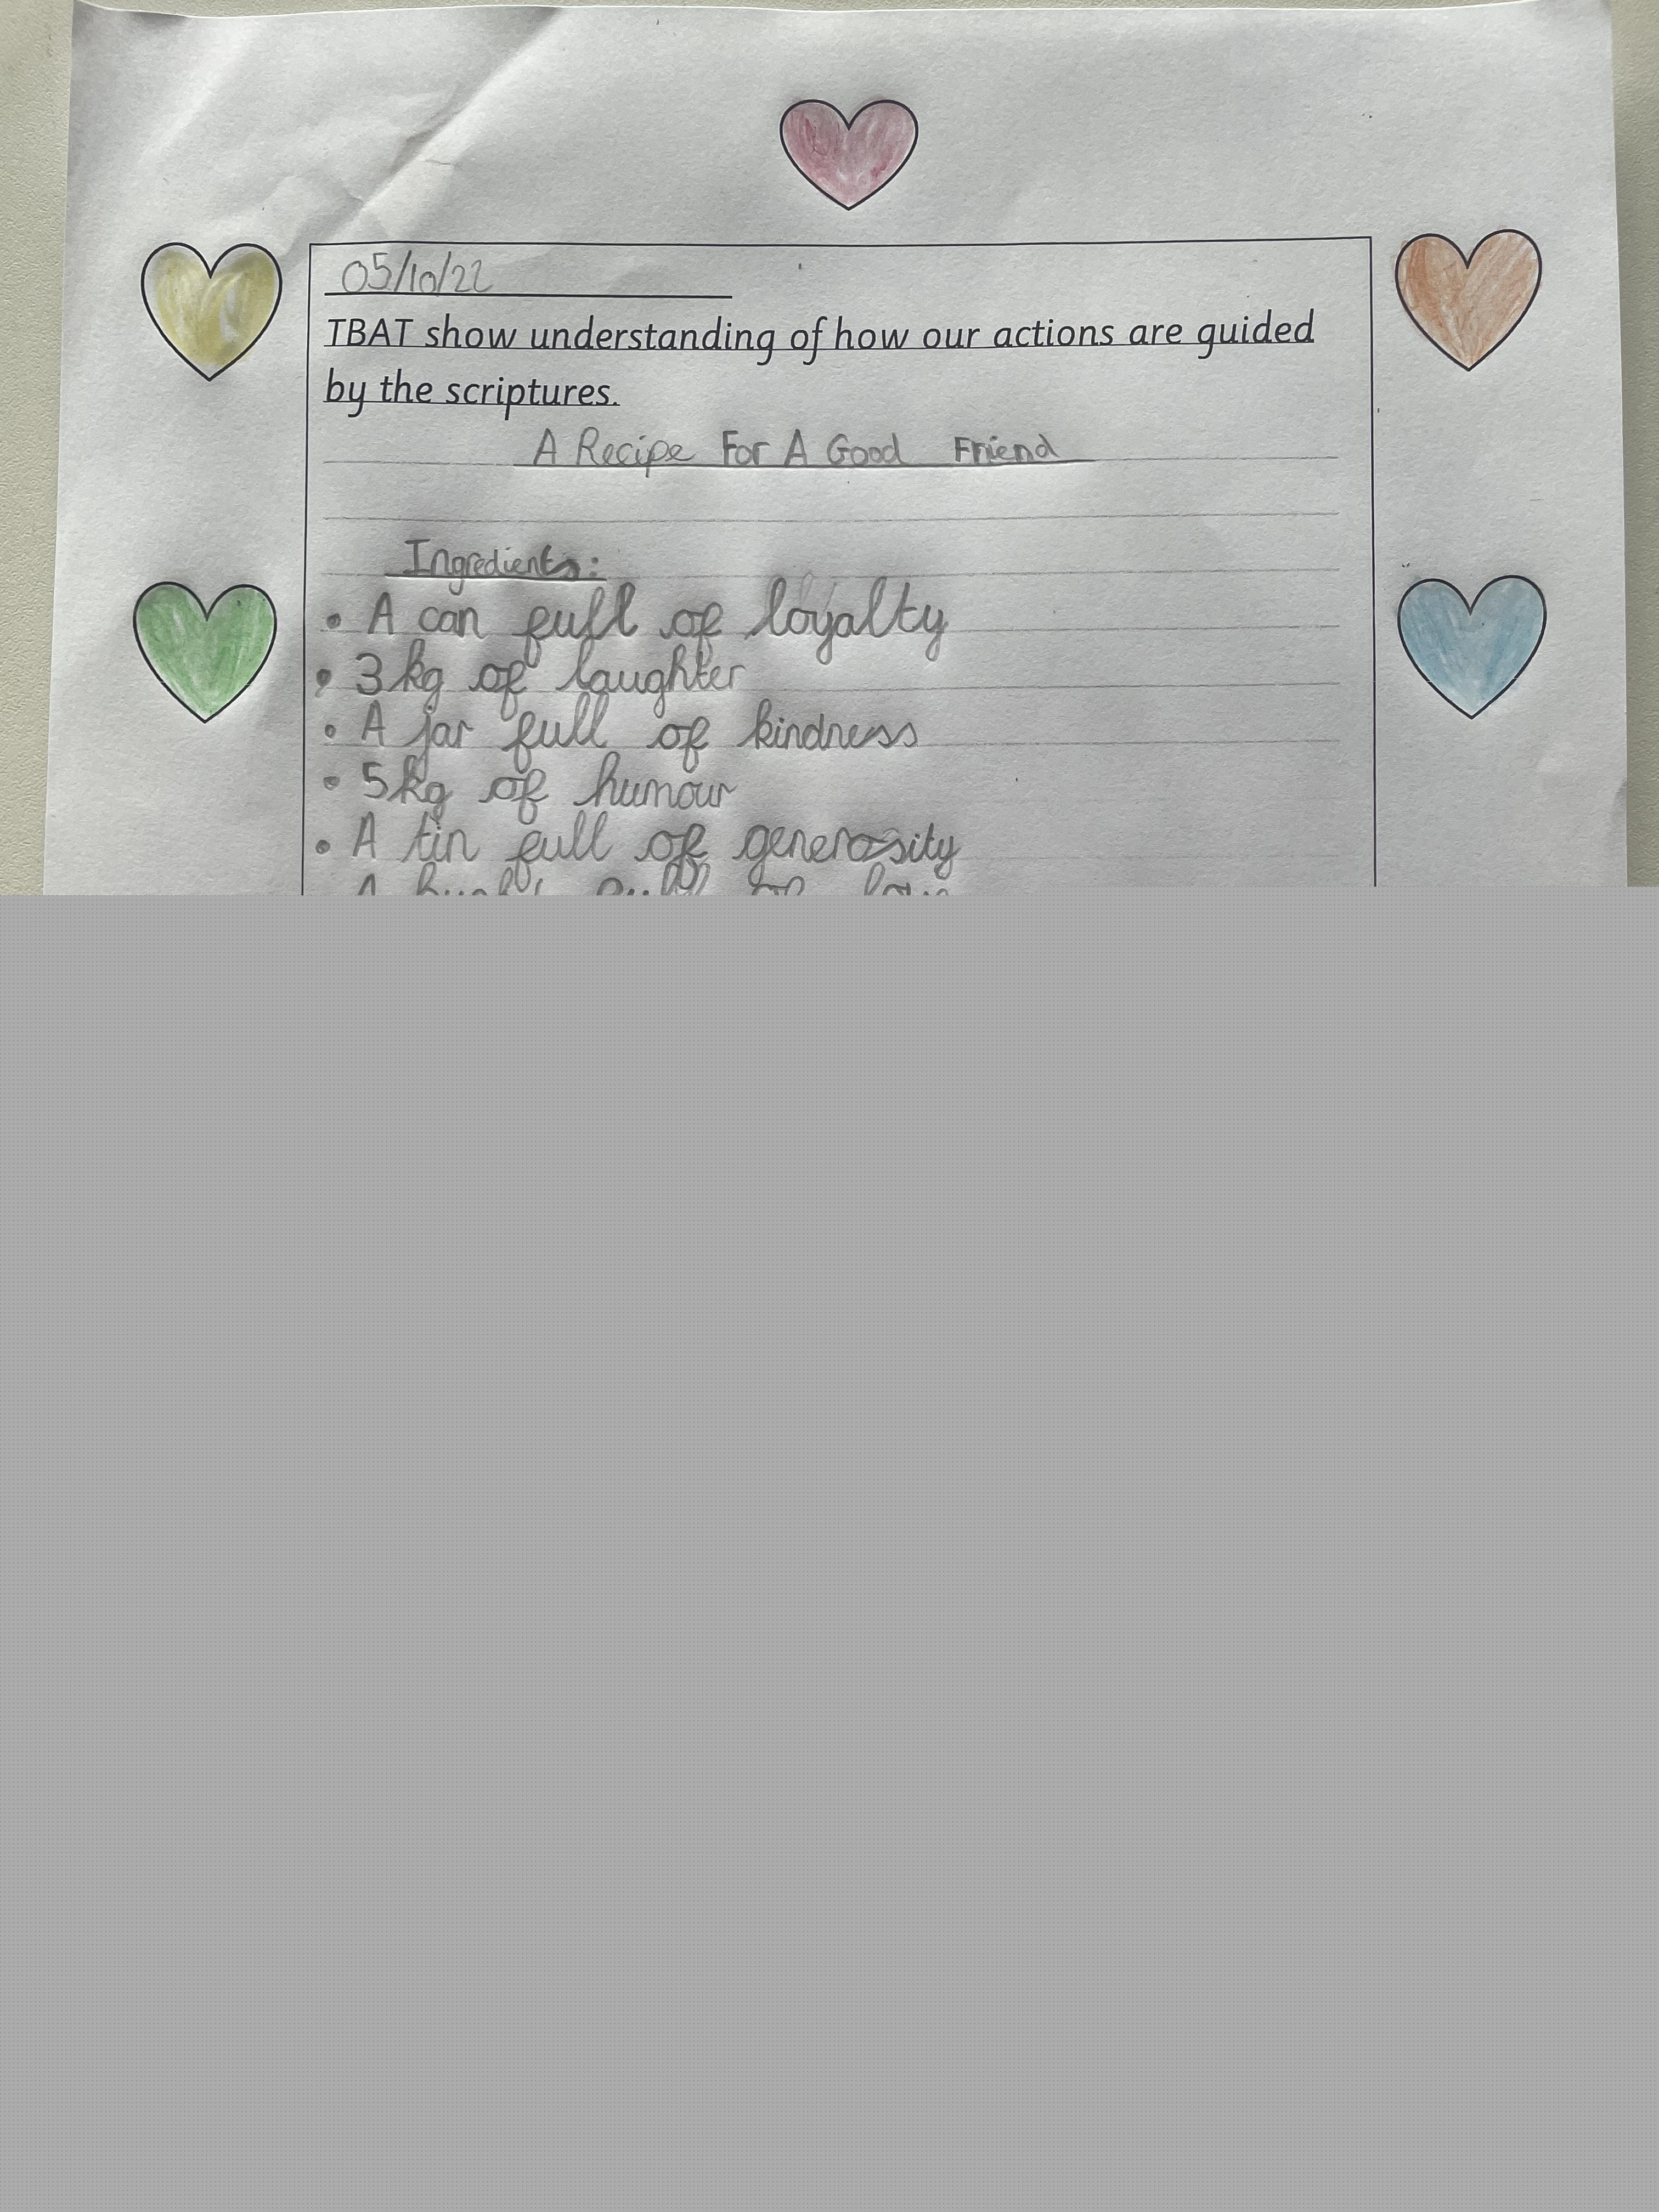 05/10/22
TBAT show understanding of how our actions are guided
by the scriptures.
A Recipe For A Good Friend
Ingredients:
• A can full of loyalty
• 3kg of laughter
• A jar full of kindness
• 5kg of humour
• A tin full of generosity
A full of love